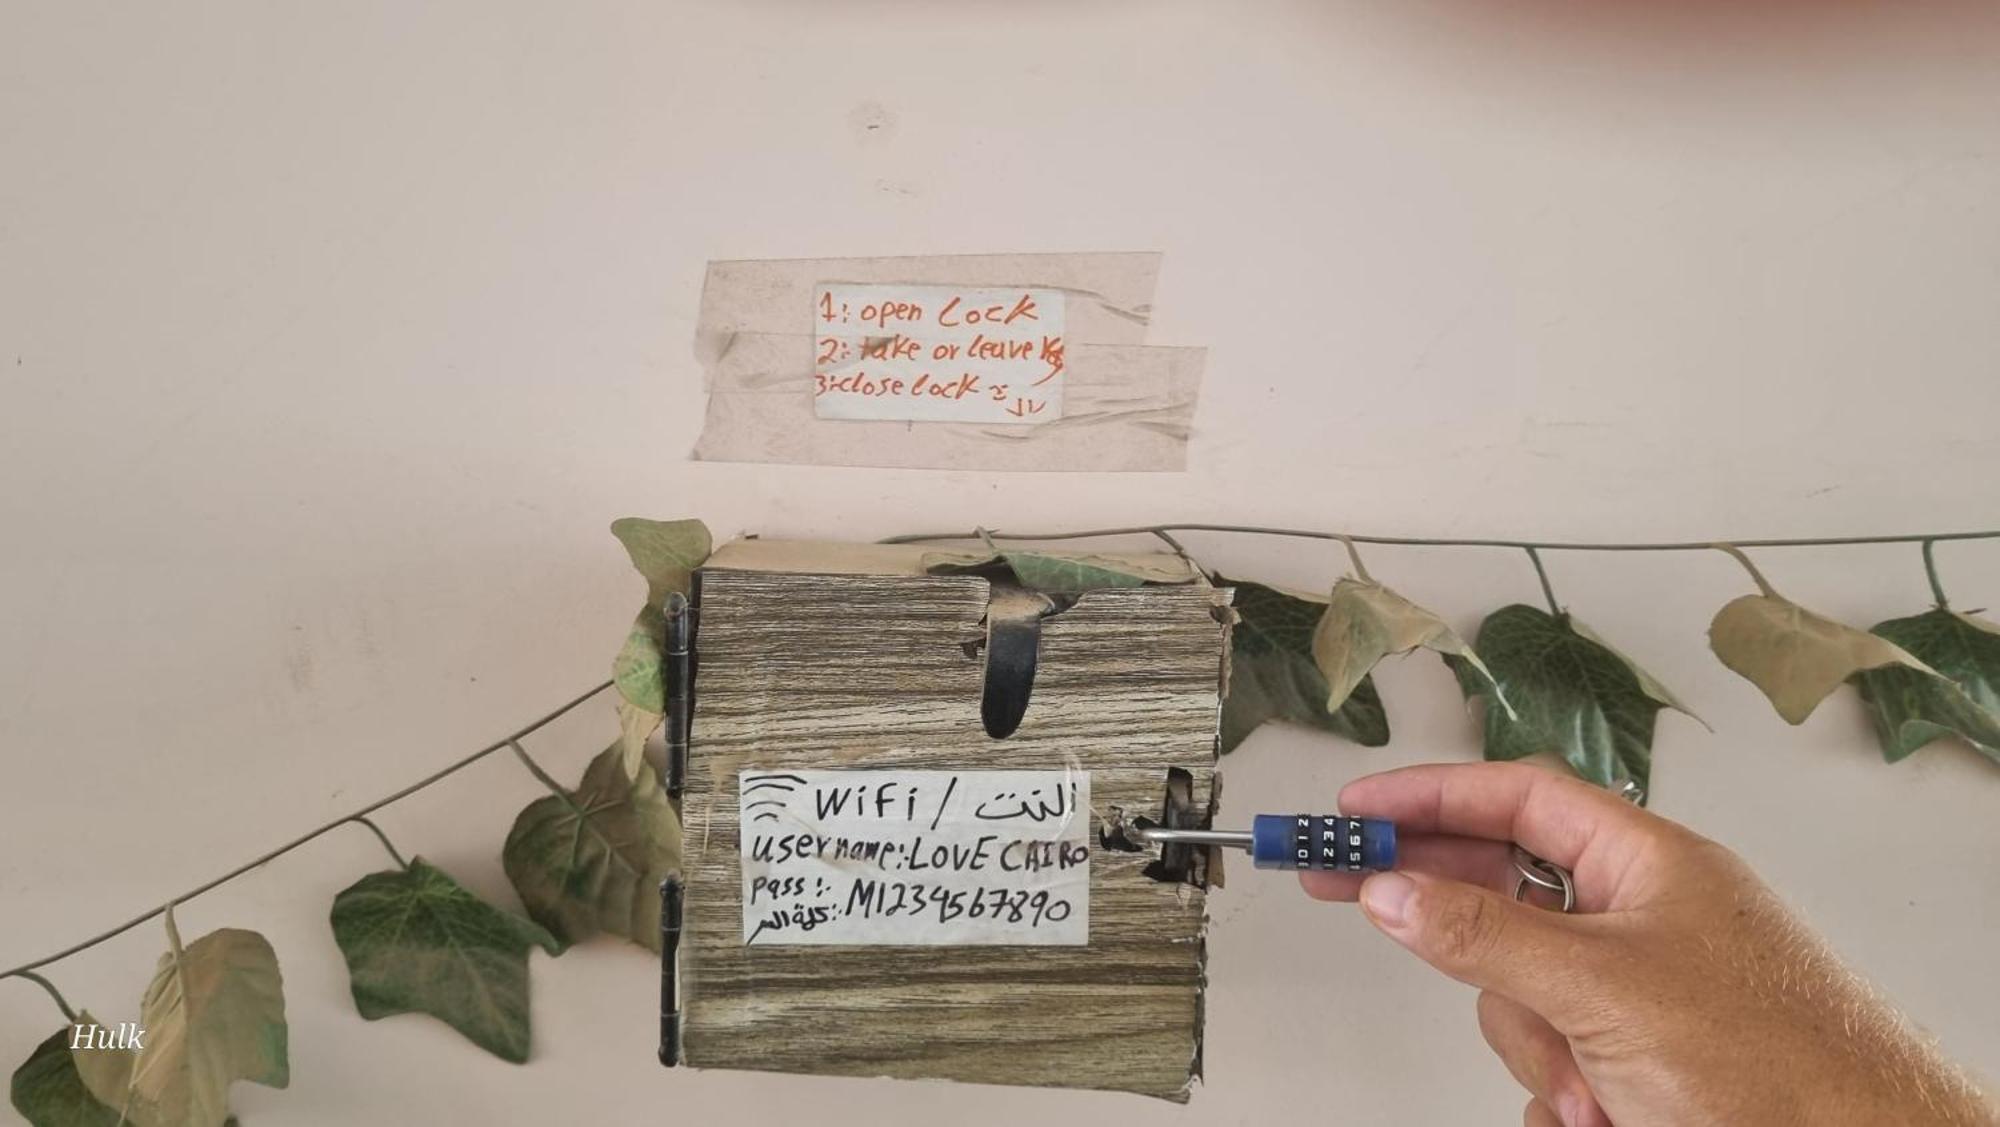 1: open Lock
2: take or leave Key
3: close lock
WiFi / النت
username: LOVE CAIRO
pass:
كلمة السر: M1234567890
0 1 2
2 3 4
5 6 7
Hulk